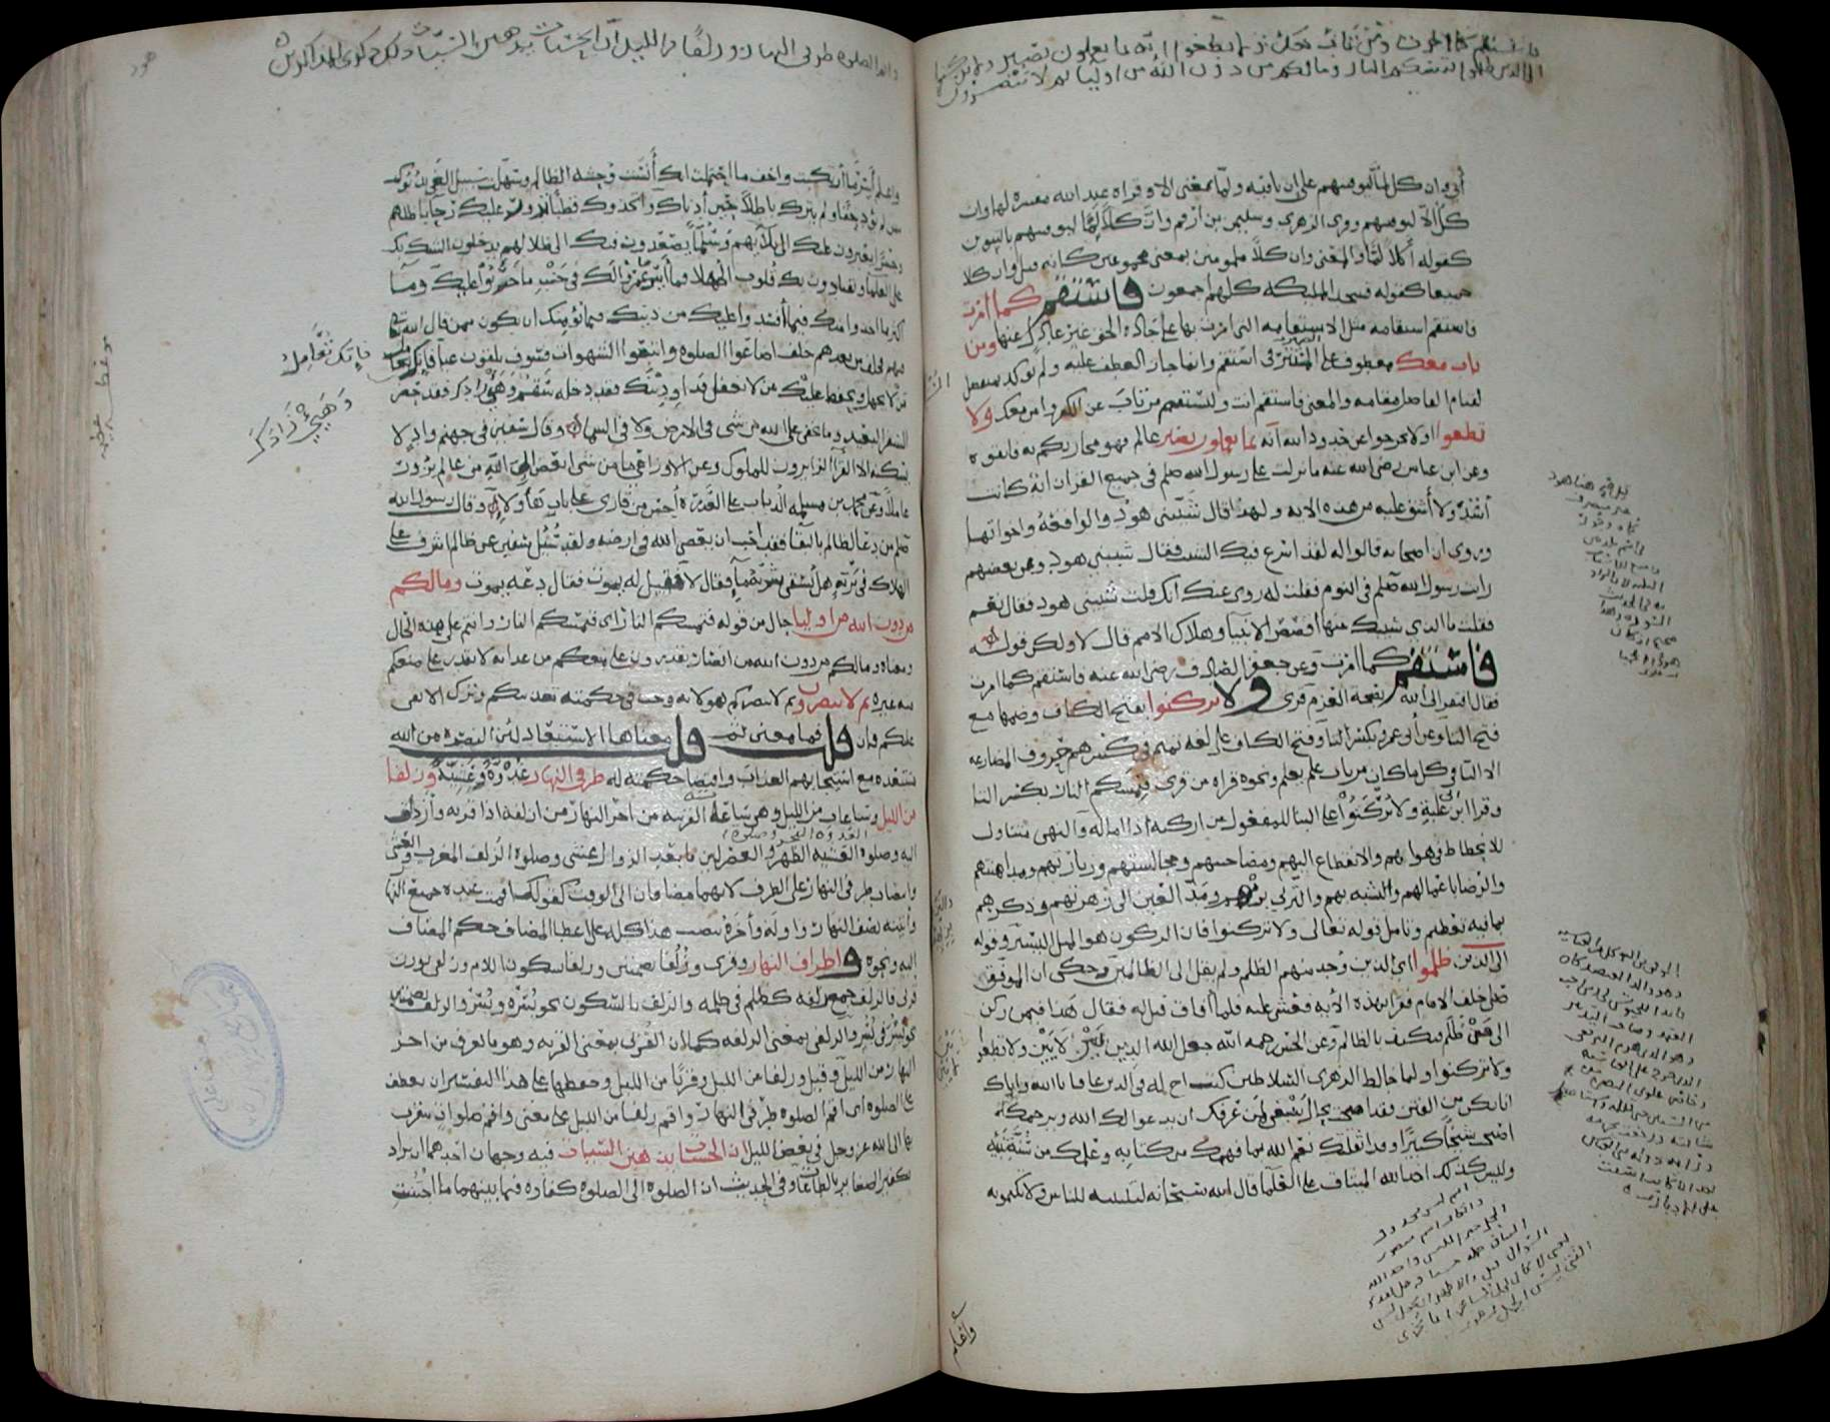 فاستقم كما امرت ومن تاب معك ولا تطغوا انه بما تعملون بصير ولا تركنوا
الى الذين ظلموا فتمسكم النار وما لكم من دون الله من اولياء ثم لا تنصرون
أبي وان كل لما ليوفينهم على ان نافية ولما بمعنى الا وقراه عبد الله مفسرة لها وان
كل الا ليوفينهم وروى الزهرى وسليمن بن ارقم وان كلا لما ليوفينهم بالتنوين
كقوله أكلا لما والمعنى وان كلا ملمومين بمعنى مجموعين كانه قيل وان كلا
جميعا كقوله فسجد المليكة كلهم اجمعون فاستقم كما امرت
فاستقم استقامة مثل الاستقامة التى امرت بها على جادة الحق غير عادل عنها ومن
تاب معك معطوف على المستتر فى استقم وانما جاز العطف عليه ولم يؤكد بمنفصل
لقيام الفاصل مقامه والمعنى فاستقم انت وليستقم من تاب عن الكفر وامن معك ولا
تطغوا ولا تخرجوا عن حدود الله انه بما تعملون بصير عالم فهو مجازيكم به فاتقوه
وعن ابن عباس رضى الله عنه ما نزلت على رسول الله صلم فى جميع القران اية كانت
أشد ولا أشق عليه من هذه الاية ولهذا قال شيبتنى هود والواقعة واخواتهما
وروى ان اصحابه قالوا له لقد اسرع فيك الشيب فقال شيبتنى هود وعن بعضهم
رايت رسول الله صلم فى النوم فقلت له روى عنك انك قلت شيبتنى هود فقال نعم
فقلت ما الذى شيبك منها أقصص الانبيا وهلاك الامم قال لا ولكن قوله
فاستقم كما امرت وعن جعفر الصادق رضى الله عنه فاستقم كما امرت
قال افتقر الى الله بصحة العزم قرى ولا تركنوا بفتح الكاف وضمها مع
فتح التا وعن أبى عمرو بكسر التا وفتح الكاف على لغة تميم فى كسرهم حروف المضارعة
الا اليا فى كل ما كان من باب علم يعلم ونحوه قراه من قرى فتمسكم النار بكسر التا
وقرا ابن ابى عبلة ولا تركنوا على البنا للمفعول من اركنه اذا اماله والنهى متناول
للانحطاط فى هواهم والانقطاع اليهم ومصاحبتهم ومجالستهم وزيارتهم ومداهنتهم
والرضا باعمالهم والتشبه بهم والتزيى بزيهم ومد العين الى زهرتهم وذكرهم
بما فيه تعظيم وتامل قوله تعالى ولا تركنوا فان الركون هو الميل اليسير وقوله
الى الذين ظلموا اى الذين وجد منهم الظلم ولم يقل الى الظالمين وحكى ان الموفق
صلى خلف الامام فقرا بهذه الاية فغشى عليه فلما أفاق قيل له فقال هذا فيمن ركن
الى من ظلم فكيف بالظالم وعن الحسن رحمه الله جعل الله الدين بين لايين ولا تطغوا
ولا تركنوا ولما خالط الزهرى السلاطين كتب اخ له فى الدين عافانا الله واياك
ابا بكر من الفتن فقد اصبحت بحال ينبغى لمن عرفك ان يدعو لك الله ويرحمك
اصبحت شيخا كبيرا وقد اثقلتك نعم الله بما فهمك من كتابه وعلمك من سنة نبيه
وليس كذلك اخذ الله الميثاق على العلما قال الله سبحانه لتبيننه للناس ولا تكتمونه
واقم الصلوة طرفى النهار وزلفا من الليل ان الحسنات يذهبن السيئات ذلك ذكرى للذاكرين
هود
واعلم أن أيسر ما ارتكبت واخف ما احتملت انك أنست وحشة الظالم وسهلت سبيل الغى بدنوك
ممن لم يؤد حقا ولم يترك باطلا حين أدناك واتخذوك قطبا تدور عليك رحا باطلهم
وجسرا يعبرون عليك الى بلائهم وسلما يصعدون فيك الى ضلالهم يدخلون الشك بك
على العلما ويقتادون بك قلوب الجهلا فما أيسر ما عمروا لك فى جنب ما خربوا عليك وما
اكثر ما اخذوا منك فيما أفسدوا عليك من دينك فما يؤمنك ان تكون ممن قال الله
فيهم فخلف من بعدهم خلف اضاعوا الصلوة واتبعوا الشهوات فسوف يلقون غيا فانك تعامل
من لا يجهل ويحفظ عليك من لا يغفل فداو دينك فقد دخله سقم وهيئ زادك فقد حضر
السفر البعيد وما يخفى على الله من شى فى الارض ولا فى السما وقال سفين فى جهنم واد لا
يسكنه الا القرا الزايرون للملوك وعن الاوزاعى ما من شى ابغض الى الله من عالم يزور
عاملا وعن محمد بن مسلمة الذباب على العذرة أحسن من قارى على باب هؤلاء وقال رسول الله
صلم من دعا لظالم بالبقا فقد أحب ان يعصى الله فى ارضه ولقد سئل سفين عن ظالم اشرف على
الهلاك فى برية هل يسقى شربة ما فقال لا فقيل له يموت فقال دعه يموت وما لكم
من دون الله من اوليا حال من قوله فتمسكم النار اى فتمسكم النار وانتم على هذه الحال
ومعناه وما لكم من دون الله من انصار يقدرون على منعكم من عذابه لا يقدر على منعكم
منه غيره ثم لا تنصرون ثم لا ينصركم هو لانه وجب فى حكمته تعذيبكم وترك الابقا
عليكم فان قلت فما معنى ثم قلت معناها الاستبعاد لان النصرة من الله
مستبعدة مع استيجابهم العذاب واقتضا حكمته له طرفى النهار غدوة وعشية وزلفا
من الليل وساعات من الليل وهى ساعاته القريبة من اخر النهار من ازلفه اذا قربه وازدلف
اليه وصلوة الغدوة الفجر وصلوة العشية الظهر والعصر لان ما بعد الزوال عشى وصلوة الزلف المغرب والعشا
وانتصاب طرفى النهار على الظرف لانهما مضافان الى الوقت كقولك اقمت عنده جميع النهار
وأتيته نصف النهار واوله وأخره تنصب هذا كله على اعطا المضاف حكم المضاف
اليه ونحوه واطراف النهار وقرى وزلفا بضمتين وزلفا بسكون اللام وزلفى بوزن
قربى فالزلف جمع زلفة كظلم فى ظلمة والزلف بالسكون نحو بسرة وبسر والزلف بضمتين
نحو بسر فى بسر والزلفى بمعنى الزلفة كما ان القربى بمعنى القربة وهو ما يقرب من اخر
النهار من الليل وقيل وزلفا من الليل وقربا من الليل وحقها على هذا التفسير ان تعطف
على الصلوة اى اقم الصلوة طرفى النهار واقم زلفا من الليل على معنى واقم صلوات تتقرب
بها الى الله عز وجل فى بعض الليل ان الحسنات يذهبن السيئات فيه وجهان احدهما ان يراد
تكفير الصغاير بالطاعات وفى الحديث ان الصلوة الى الصلوة كفارة فما بينهما ما اجتنبت
فانك تعامل
وهيئ زادك